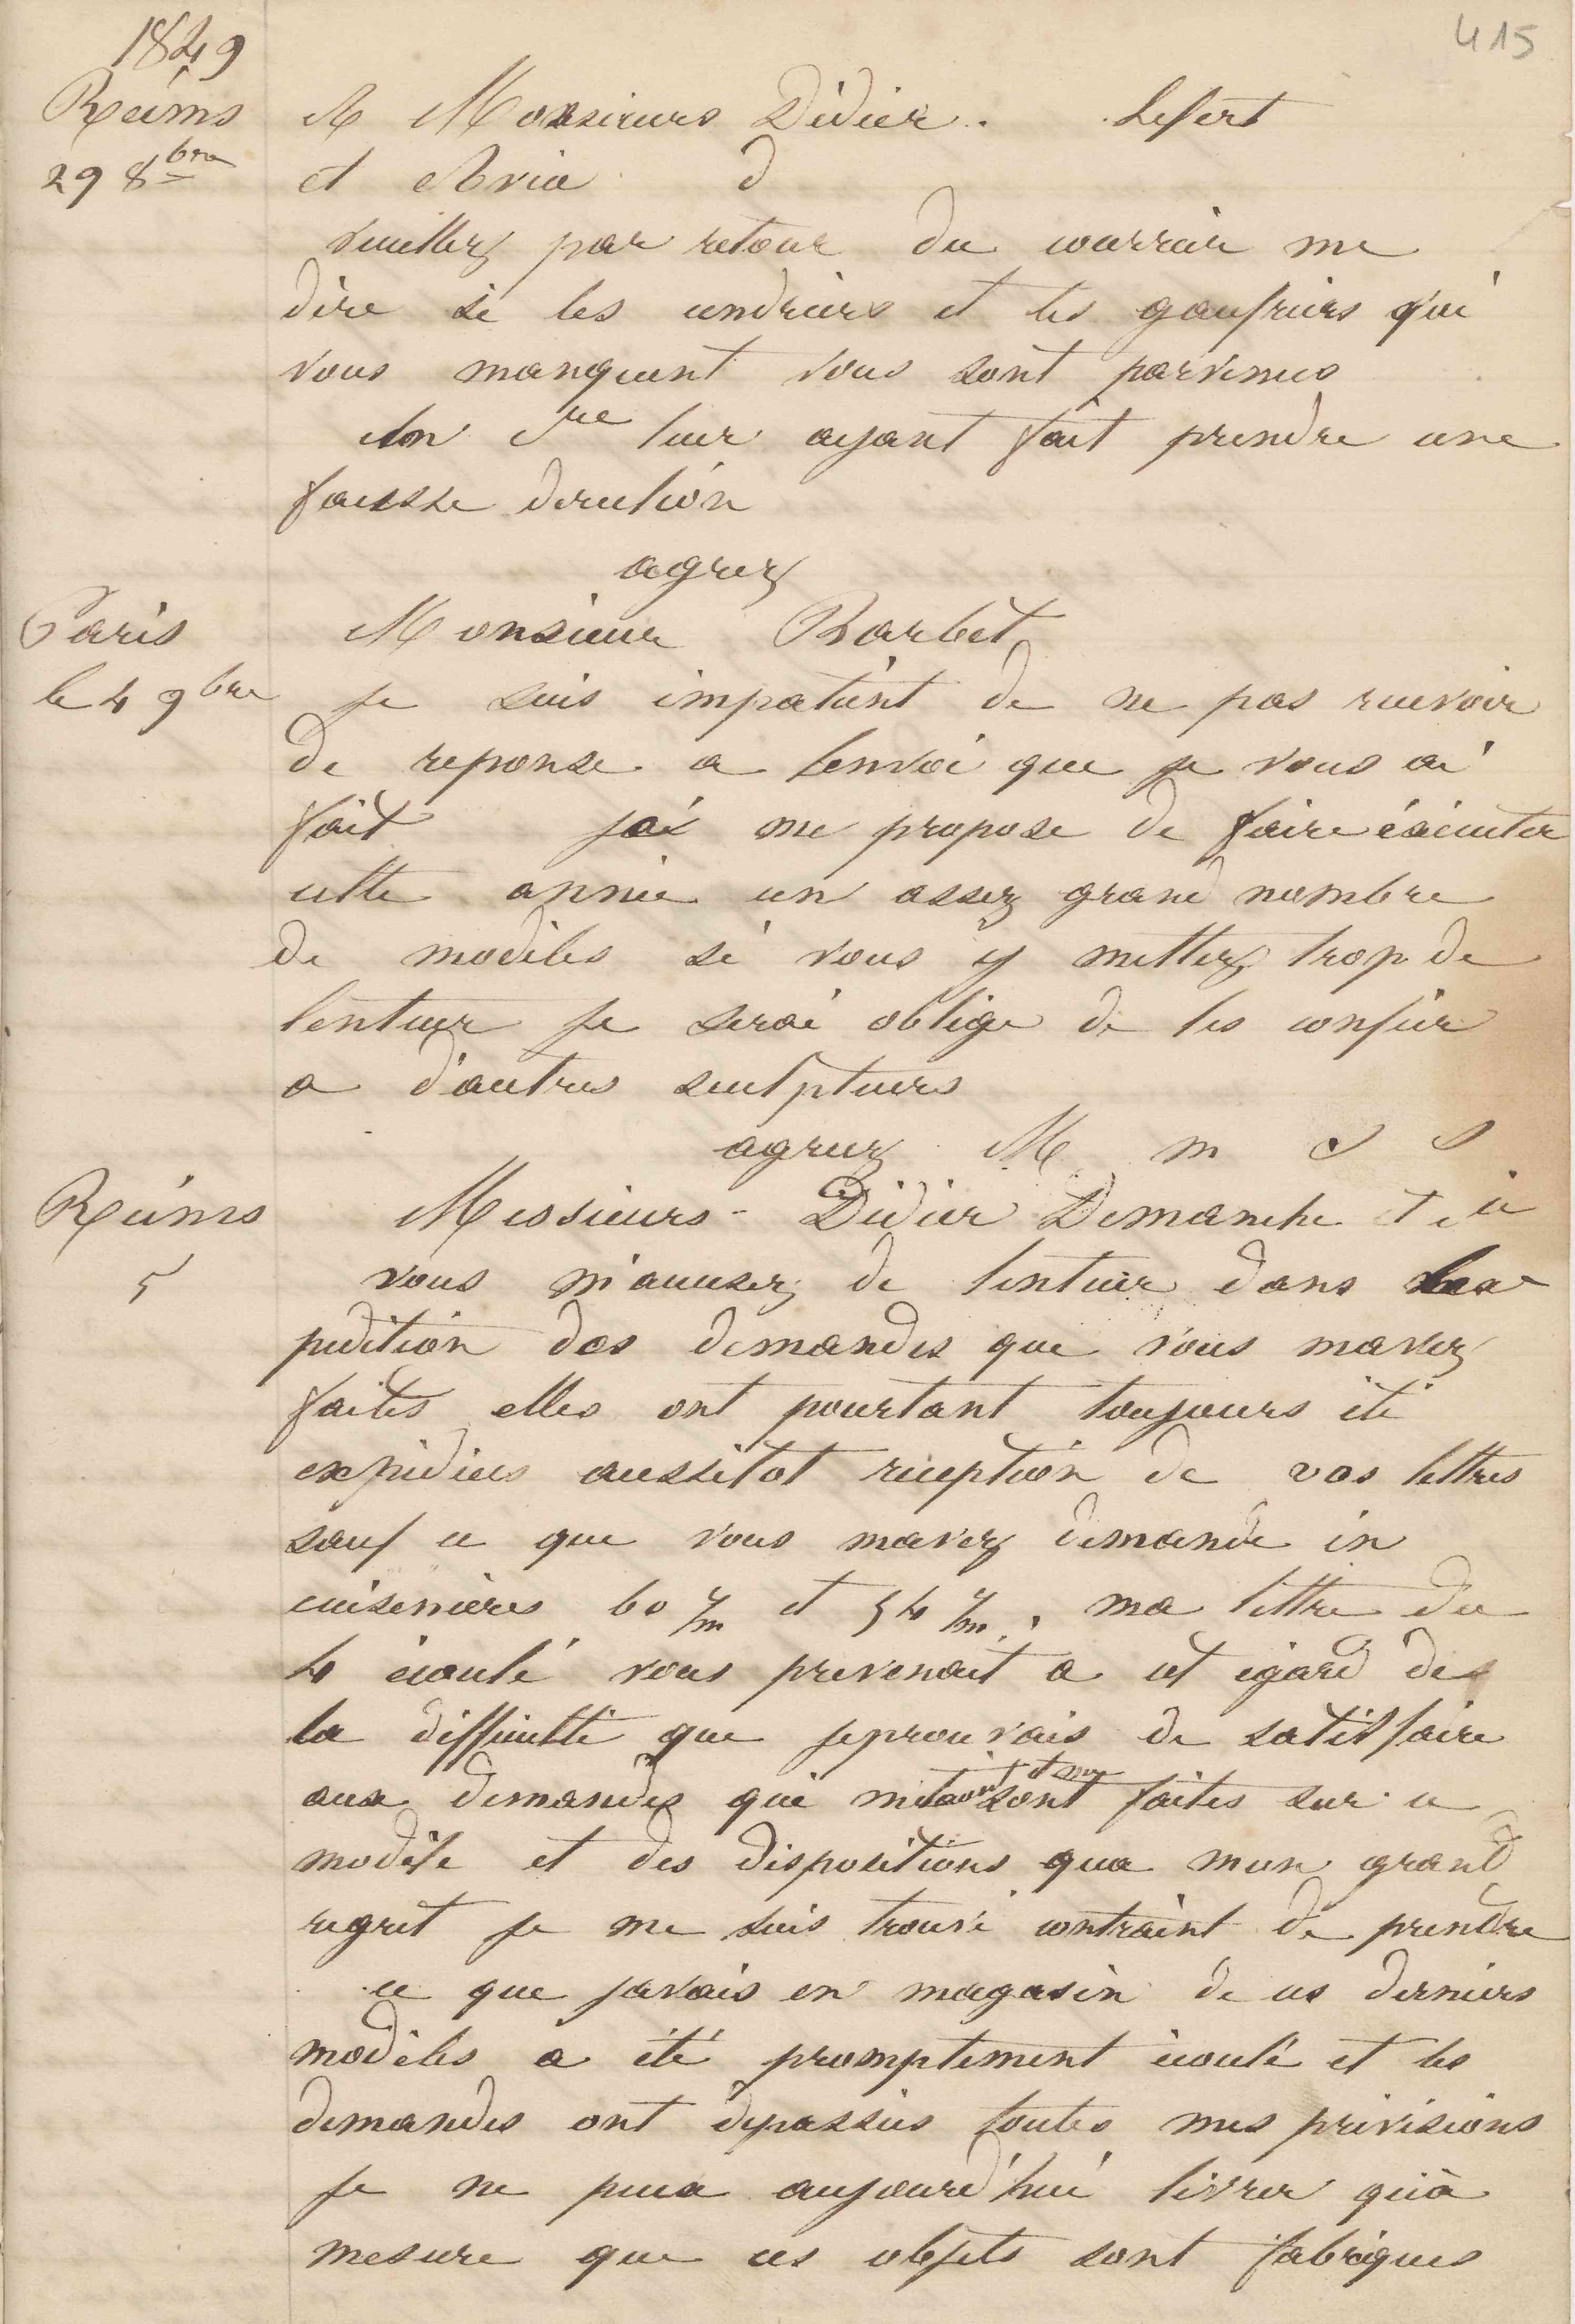 415
1849
Reims
29 8bre
A Monsieurs Didier. Lefert
et Avia d
veuillez par retour du courrier me
dire si les cendriers et les gaufriers qui
vous manquent vous sont parvenus
leur ayant fait prendre une
fausse direction
agrez
Paris
le 4 9bre
Monsieur Barbet
je suis impatient de ne pas recevoir
de reponse a lenvoi que je vous ai
fait jai me propose de faire éxécuter
cette année un assez grand nombre
de modèles si vous y mettez trop de
lenteur je serai obligé de les confier
a d'autres sculpteurs
agreez M m
Reims
5
Messieurs Didier Demanche et cie
vous m'accusez de lenteur dans lex
pedition des demandes que vous mavez
faites elles ont pourtant toujours été
expédiées aussitot reception de vos lettres
sauf ce que vous mavez demandé en
cuisinières 60 c/m et 54 c/m. ma lettre du
4 écoulé vous prevenait a cet égard de
la difficulté que jeprouvais de satisfaire
aux demandes qui sont faites sur ce
modèle et des dispositions qua mon grand
regret je me suis trouvé contraint de prendre
ce que javais en magasin de ces derniers
modèles a été promptement écoulé et les
demandes ont dépassées toutes mes prévisions
je ne peux aujourd'hui livrer qu'à
mesure que ces objets sont fabriques